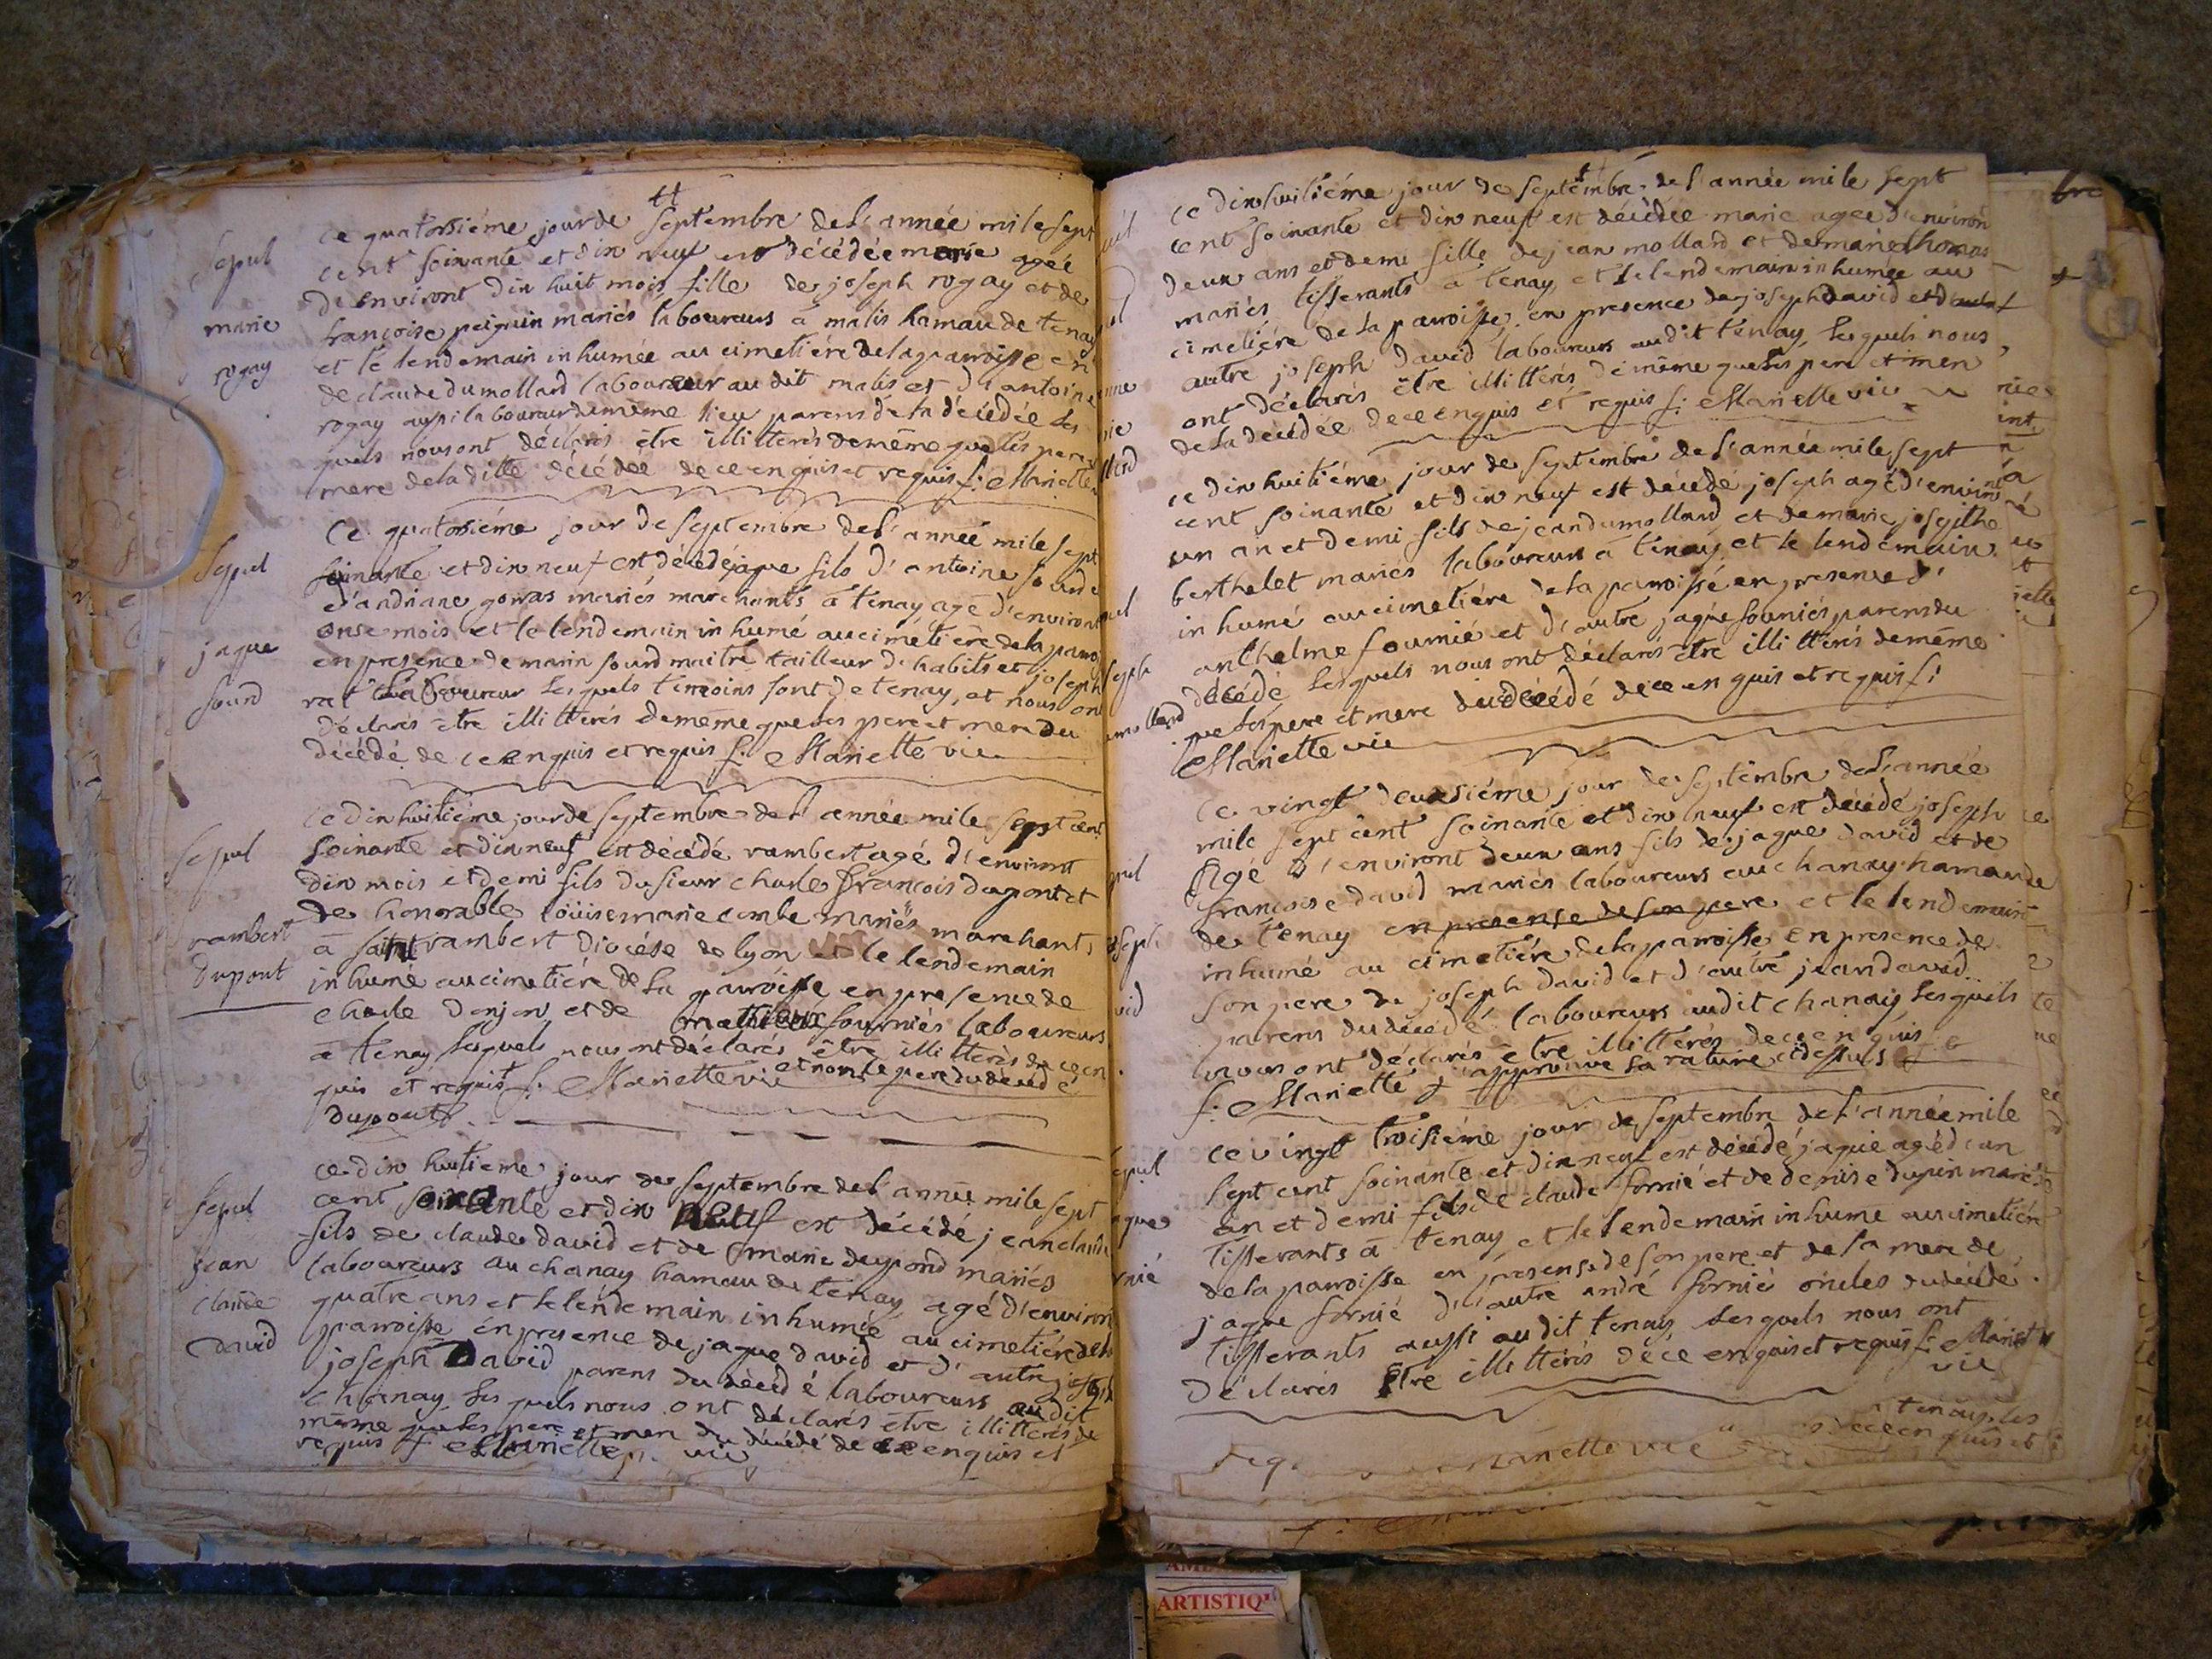 Sepul
marie
rogay
ce quatorsiéme jour de septembre de l'année mile sept
cent soixante et dix neuf est décédée marie agée
d'environt dix huit mois fille de joseph rogay et de
françoise peiguin mariés laboureurs a malis hamau de tenay
et le lendemain inhumée au cimetiére de la parroisse en
de claude dumollard laboureur au dit malis et d'antoine
rogay aussi laboureur du même lieu parens de la décédée les
quels nous ont déclarés être illitterés de même que les pere
mere de la ditte décédée de ce enquis et requis f: Mariette
Sepul
jaque
sourd
Ce quatorsiéme jour de septembre de l'année mile sept
soixante et dix neuf est décédé jaque fils d'antoine sourd
d'andriane goras mariés marchants a tenay agé d'environt
onse mois et le lendemain inhumé au cimétiére de la parro
en presence de marin sourd maitre tailleur d'habits et joseph
rat laboureur lesquels temoins sont de tenay, et nous ont
déclarés être illitterés de même que les pere et mere du
décédé de ce enquis et requis f: Mariette vic
Sepul
rambert
Dupont
Ce dix huitiéme jour de septembre de l'année mile sept cent
soixante et dix neuf est décédé rambert agé d'environt
dix mois et demi fils du sieur charle françois dupont et
de honorable loüise marie combe mariés marchants
a saint rambert diocése de lyon et le lendemain
inhumé au cimetiére de la parroisse en presence de
charle donjon et de mathieux fourniés laboureurs
a tenay lesquels nous ont déclarés être illitterés de ce en
quis et requis f: Mariette vic et non le pere du décédé
dupont
Sepul
jean
claude
David
ce dix huitieme jour de septembre de l'année mile sept
cent soixante et dix neuf est décédé jean claude
fils de claude david et de marie dupond mariés
laboureurs au chanay hamau de tenay agé d'environt
quatre ans et le lendemain inhumé au cimetiére de la
parroisse en presence de jaque david et d'autre joseph
joseph David parens du décédé laboureurs au dit
chanay lesquels nous ont déclarés être illitterés de
même que les pere et mere du décédé de ce enquis et
requis f Mariette vic
ce dix huitiéme jour de septembre de l'année mile sept
cent soixante et dix neuf est décédée marie agée d'environ
deux ans et demi fille de jean mollard et de marie thomas
mariés tisserants a tenay et le lendemain inhumée au
cimetiére de la parroisse en presence de joseph david et d'autre
autre joseph david laboureurs audit tenay lesquels nous
ont déclarés être illitterés de même que les pere et mere
de la décédée de ce enquis et requis f: Mariette vic
ce dix huitiéme jour de septembre de l'année mile sept
cent soixante et dix neuf est décédé joseph agé d'environt
un an et demi fils de jean dumollard et de marie josephe
berthelet mariés laboureurs a tenay et le lendemain
inhumé au cimetiére de la parroisse en presence d'
anthelme fournié et d'autre jaque fourniés parens du
décédé lesquels nous ont déclarés être illitterés de même
que les pere et mere du décédé de ce enquis et requis f:
Mariette vic
Ce vingt deuxsiéme jour de septembre de l'année
mile sept cent soixante et dix neuf est décédé joseph
Agé d'environt deux ans fils de jaque david et de
françoise david mariés laboureurs au chanay hamau de
de tenay en presense de son pere et le lendemain
inhumé au cimetiére de la parroisse en presence de
son pere de joseph david et d'autre jean david
parens du décédé laboureurs audit chanay lesquels
nous ont déclarés être illitterés de ce enquis
f: Mariette j'approuve la rature cidessus
ce vingt troisiéme jour de septembre de l'année mile
sept cent soixante et dix neuf est décédé jaque agé d'un
an et demi fils de claude fornié et de denise dupin mariés
tisserants a tenay et le lendemain inhume au cimetiére
de la parroisse en presense de son pere et de la mere de
jaque fornié d'autre andré fornié oncles du décédé
tisserants aussi audit tenay lesquels nous ont
déclarés être illitterés de ce enquis et requis f: Mariette
vic
tenay les
de ce enquis et
Mariette vic
ARTISTIQ